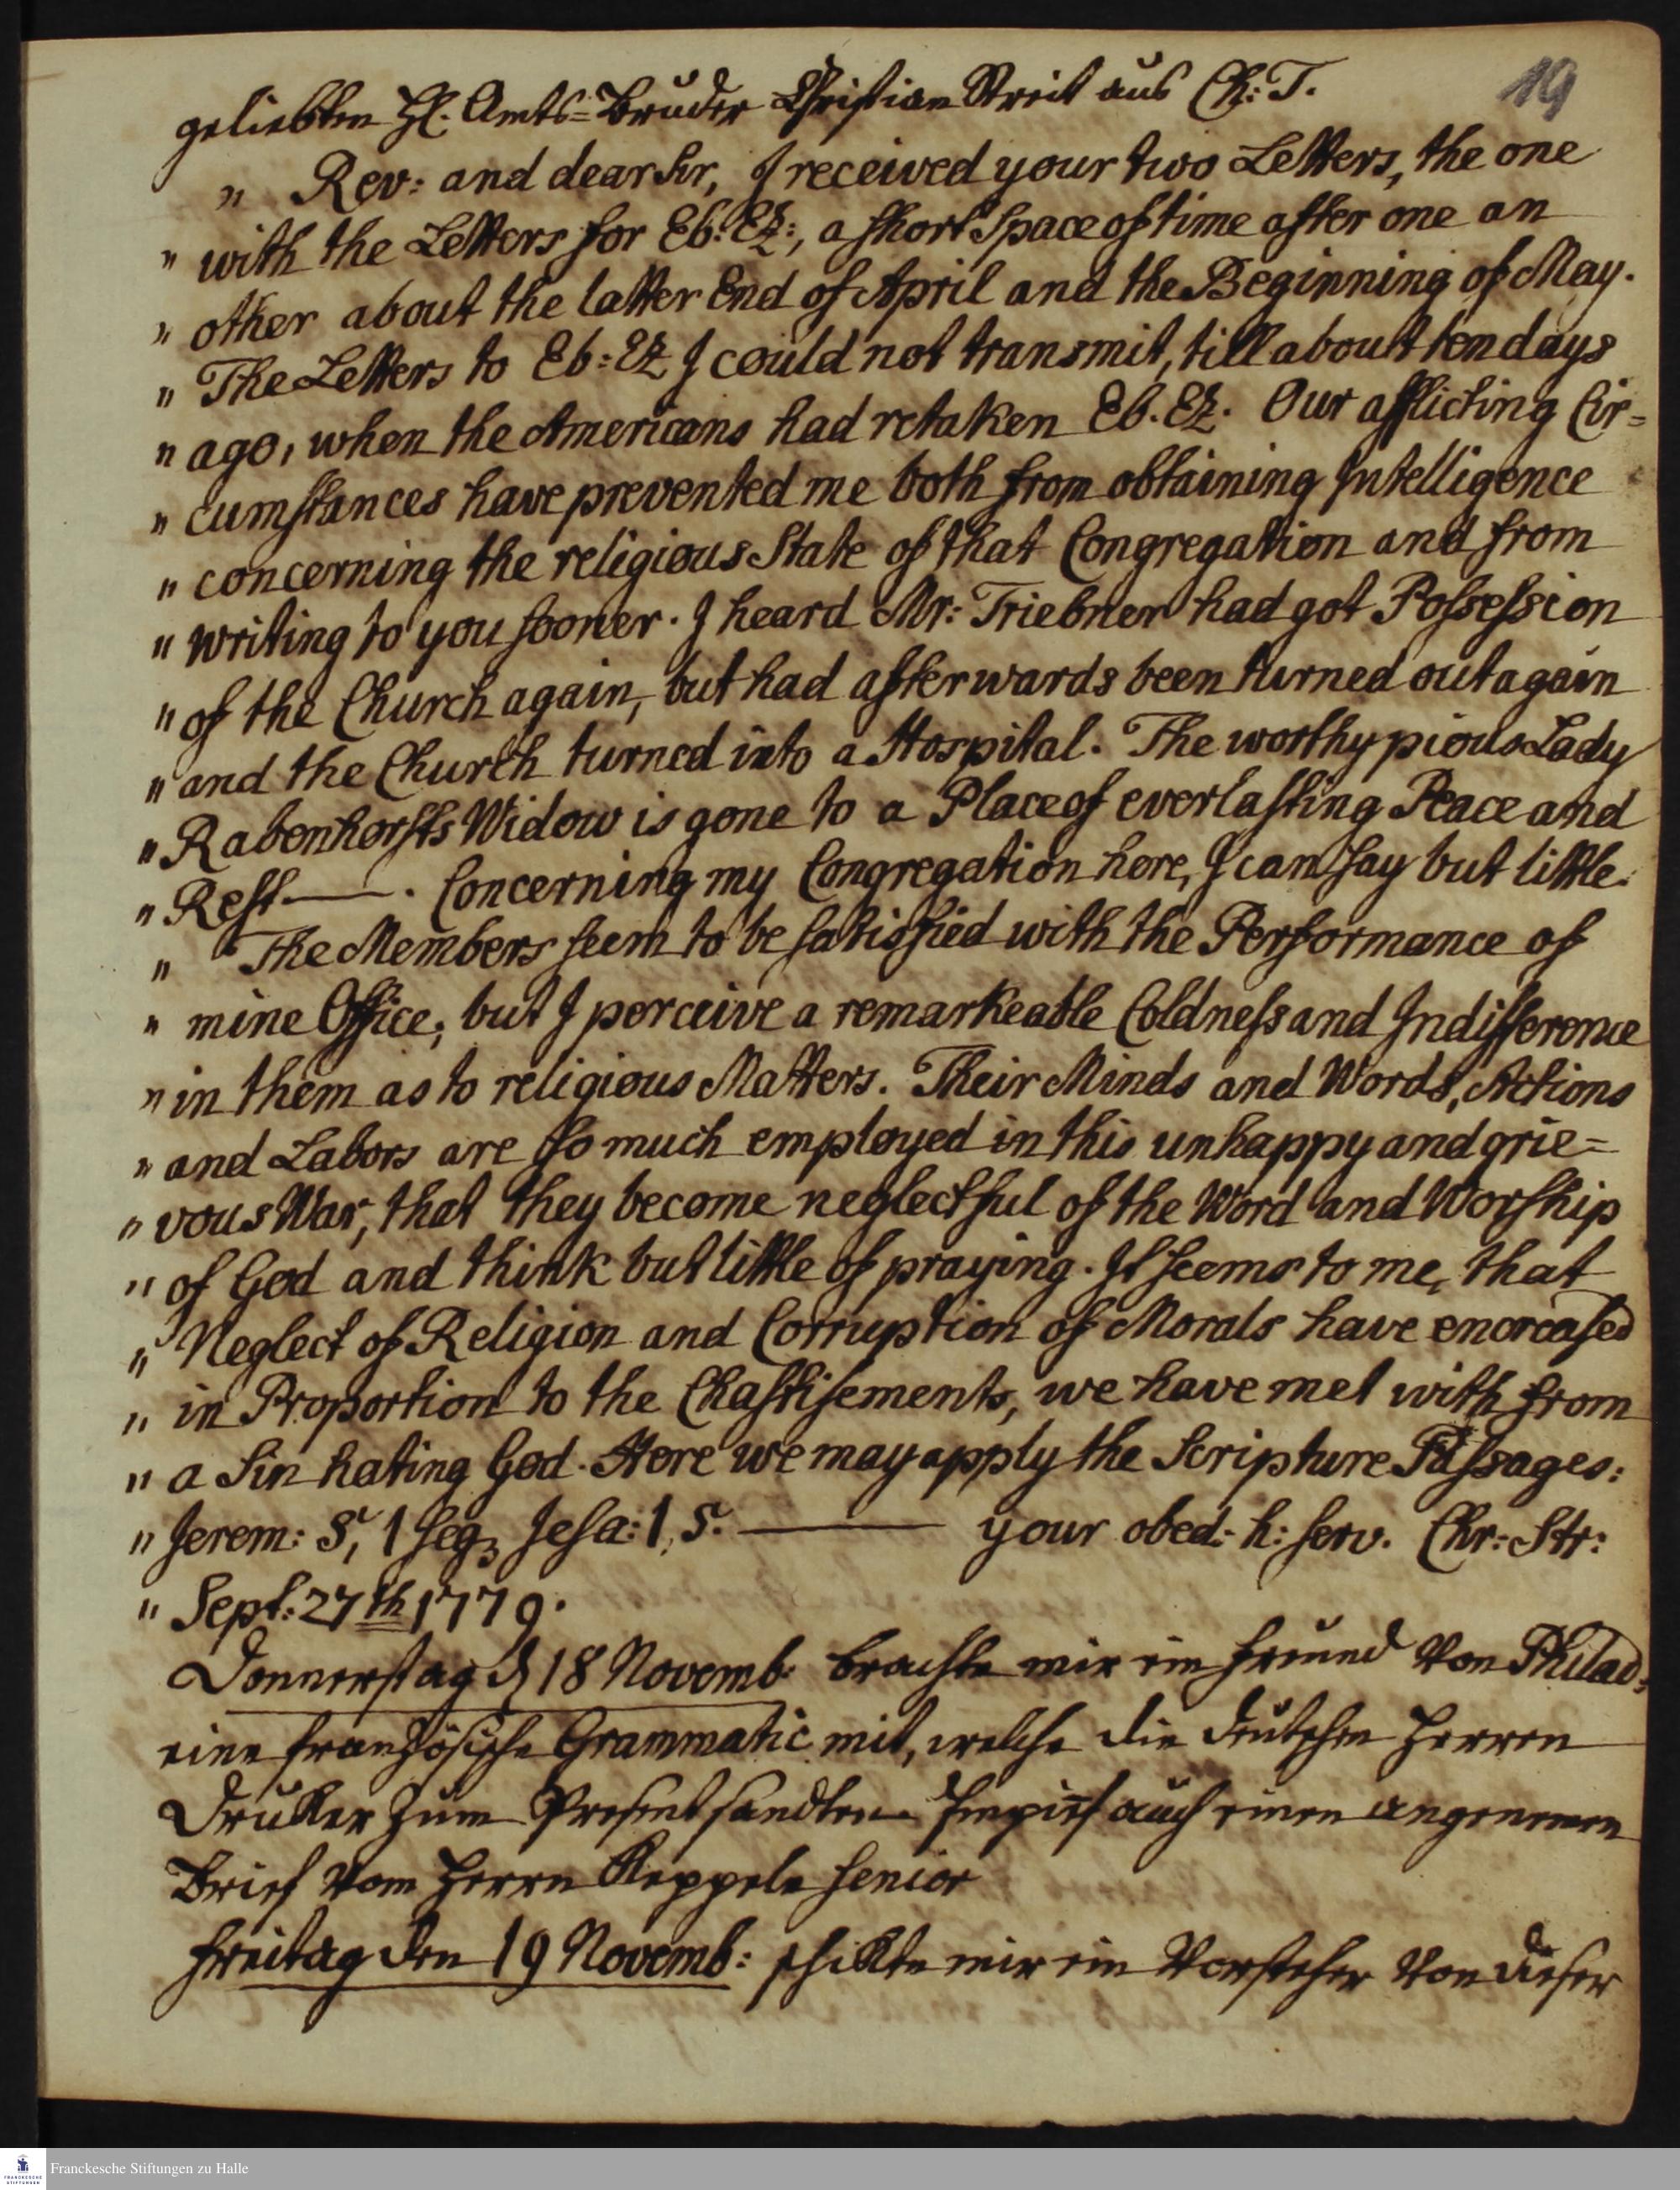 19
geliebten H. Amts=Bruder Christian Streit aus Ch: T.
" Rev: and dear Sir, I received your two Letters, the one
" with the Letters for Eb: Ez:, a short Space of time after one an
" other about the latter End of April and the Beginning of May.
" The Letters to Eb: Ez I could not transmit, till about ten days
" ago, when the Americans had retaken Eb. Ez. Our afflicting Cir=
" cumstances have prevented me both from obtaining Intelligence
" concerning the religious State of that Congregation and from
" writing to you sooner. I heard Mr: Triebner had got Possession
" of the Church again, but had afterwards been turned out again
" and the Church turned into a Hospital. The worthy pious Lady
" Rabenhorsts Widow is gone to a Place of everlasting Peace and
" Rest —. Concerning my Congregation here, I can say but little.
" The Members seem to be satisfied with the Performance of
" mine Office; but I perceive a remarkeable Coldness and Indifference
" in them as to religious Matters. Their Minds and Words, Actions
" and Labors are so much employed in this unhappy and grie=
" vous War, that they become neglectful of the Word and Worship
" of God and think but little of praying. It seems to me, that
" Neglect of Religion and Corruption of Morals have encreased
" in Proportion to the Chastisements, we have met with from
" a Sin hating God. Here we may apply the Scripture Passages:
" Jerem: 5, 1 seq, Jesa: 1, 5. — your obed: h: serv. Chr: Str:
" Sept: 27th 1779.
Donnerstag d 18 Novemb: brachte mir ein Freund von Philad:
eine französische Grammatic mit, welche die deutschen Herren
Drukker zum Present sandten. Empfing auch einen angenemen
Brief vom Herrn Keppele senior
Freitag den 19 Novemb: schikte mir ein Vorsteher von dieser
Franckesche Stiftungen zu Halle
FRANCKESCHE
STIFTUNGEN